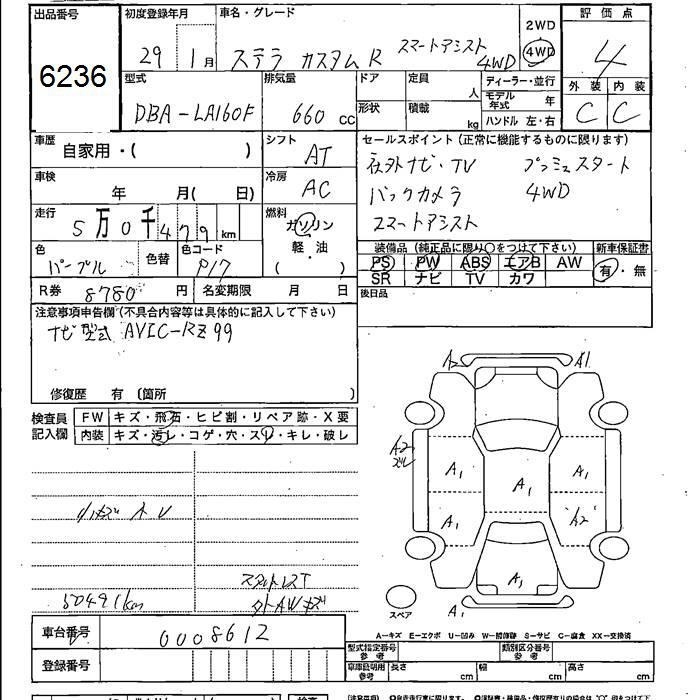 出品番号 初度登録年月 車名・グレード 2WD 評価点
6236 29年 1月 ステラ カスタムR スマートアシスト 4WD 4WD 4
型式 排気量 ドア 定員 ディーラー・並行 外装 内装
DBA-LA160F 660cc 人 モデル年式 年 C C
形状 積載 kg ハンドル 左・右
車歴 シフト セールスポイント(正常に機能するものに限ります)
自家用・( ) AT 社外ナビ・TV プッシュスタート
車検 冷房 バックカメラ 4WD
年 月( 日) AC スマートアシスト
走行 燃料
5万0千479km ガソリン
色 色替 色コード 軽・油 装備品(純正品に限り○をつけて下さい) 新車保証書
パープル P17 ( ) PS PW ABS エアB AW 有・無
R券 8780円 名変期限 月 日 SR ナビ TV カワ
後日品
注意事項申告欄(不具合内容等は具体的に記入して下さい)
ナビ型式 AVIC-RZ99
修復歴 有(箇所 )
A2 A1
検査員記入欄 FW キズ・飛石・ヒビ割・リペア跡・X要
内装 キズ・汚レ・コゲ・穴・スレ・キレ・破レ
A2
ズレ
A1 A1 A1
A1
A1
スタッドレスT
50491km 外AWキズ
スペア A1
A-キズ E-エクボ U-凹み W-補修跡 S-サビ C-腐食 XX-交換済
車台番号 0008612
型式指定番号 参考 類別区分番号 参考
登録番号 車庫証明用 参考 長さ cm 幅 cm 高さ cm